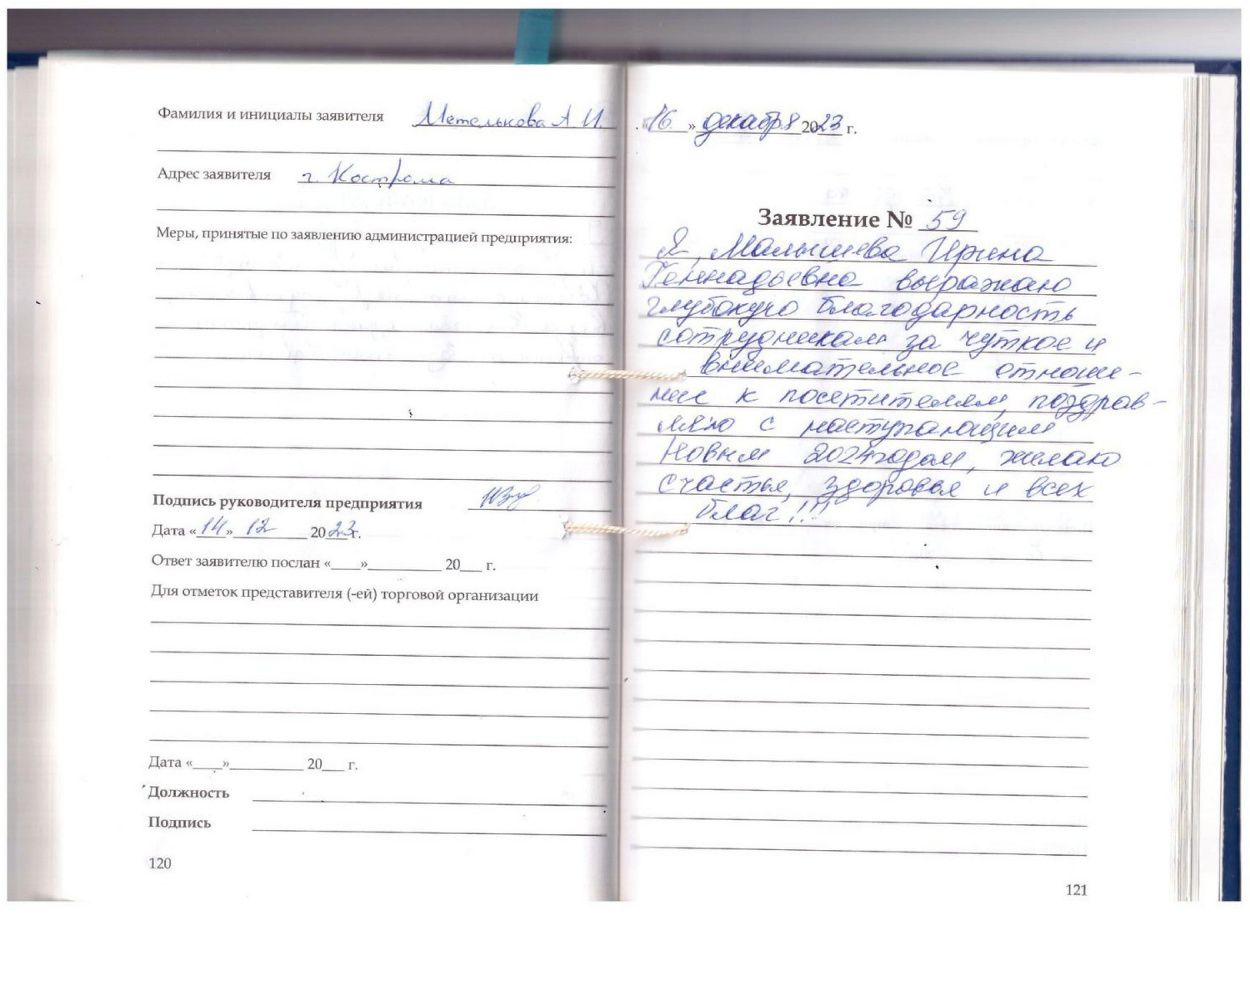 Фамилия и инициалы заявителя Метелькова А И.
Адрес заявителя г. Кострома
Меры, принятые по заявлению администрацией предприятия:
Подпись руководителя предприятия
Дата «14» 12 2023 г.
Ответ заявителю послан «____»__________ 20___ г.
Для отметок представителя (-ей) торговой организации
Дата «____»__________ 20___ г.
Должность
Подпись
120
«16» декабря 2023 г.
Заявление № 59
Я, Малышева Ирина
Геннадьевна выражаю
глубокую благодарность
сотрудникам за чуткое и
внимательное отноше-
ние к посетителям, поздрав-
ляю с наступающим
Новым 2024 годом, желаю
счастья, здоровья и всех
благ!!!
121